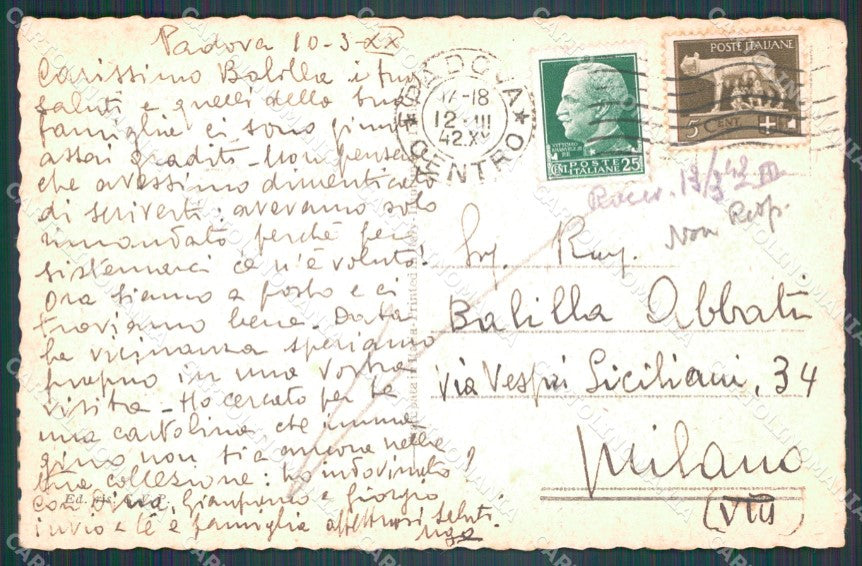 Padova 10-3-XX
Carissimo Balilla i tuoi
saluti e quelli della tua
famiglia ci sono giunti
assai graditi. Non pensare
che avessimo dimenticato
di scriverti: avevamo solo
rimandato perché per
sistemarci ce n'è voluto!
Ora siamo a posto e ci
troviamo bene. Data
la vicinanza speriamo
proprio in una vostra
visita - Ho cercato per te
una cartolina che imma-
gino non sia ancora nella
tua collezione: ho indovinato?
Con Dina, Gianfranco e Giorgio
invio a te e famiglia affettuosi saluti.
Ugo
Ed.
PADOVA CENTRO
17-18
12 III
42.XX
VITTORIO
POSTE
ITALIANE
CENT. 25
POSTE ITALIANE
5 CENT
Ricev. 13/3 42
Non Risp.
Sig. Rag.
Balilla Abbati
via Vespri Siciliani, 34
Milano
(VIII)
CARTOLINOMANIA